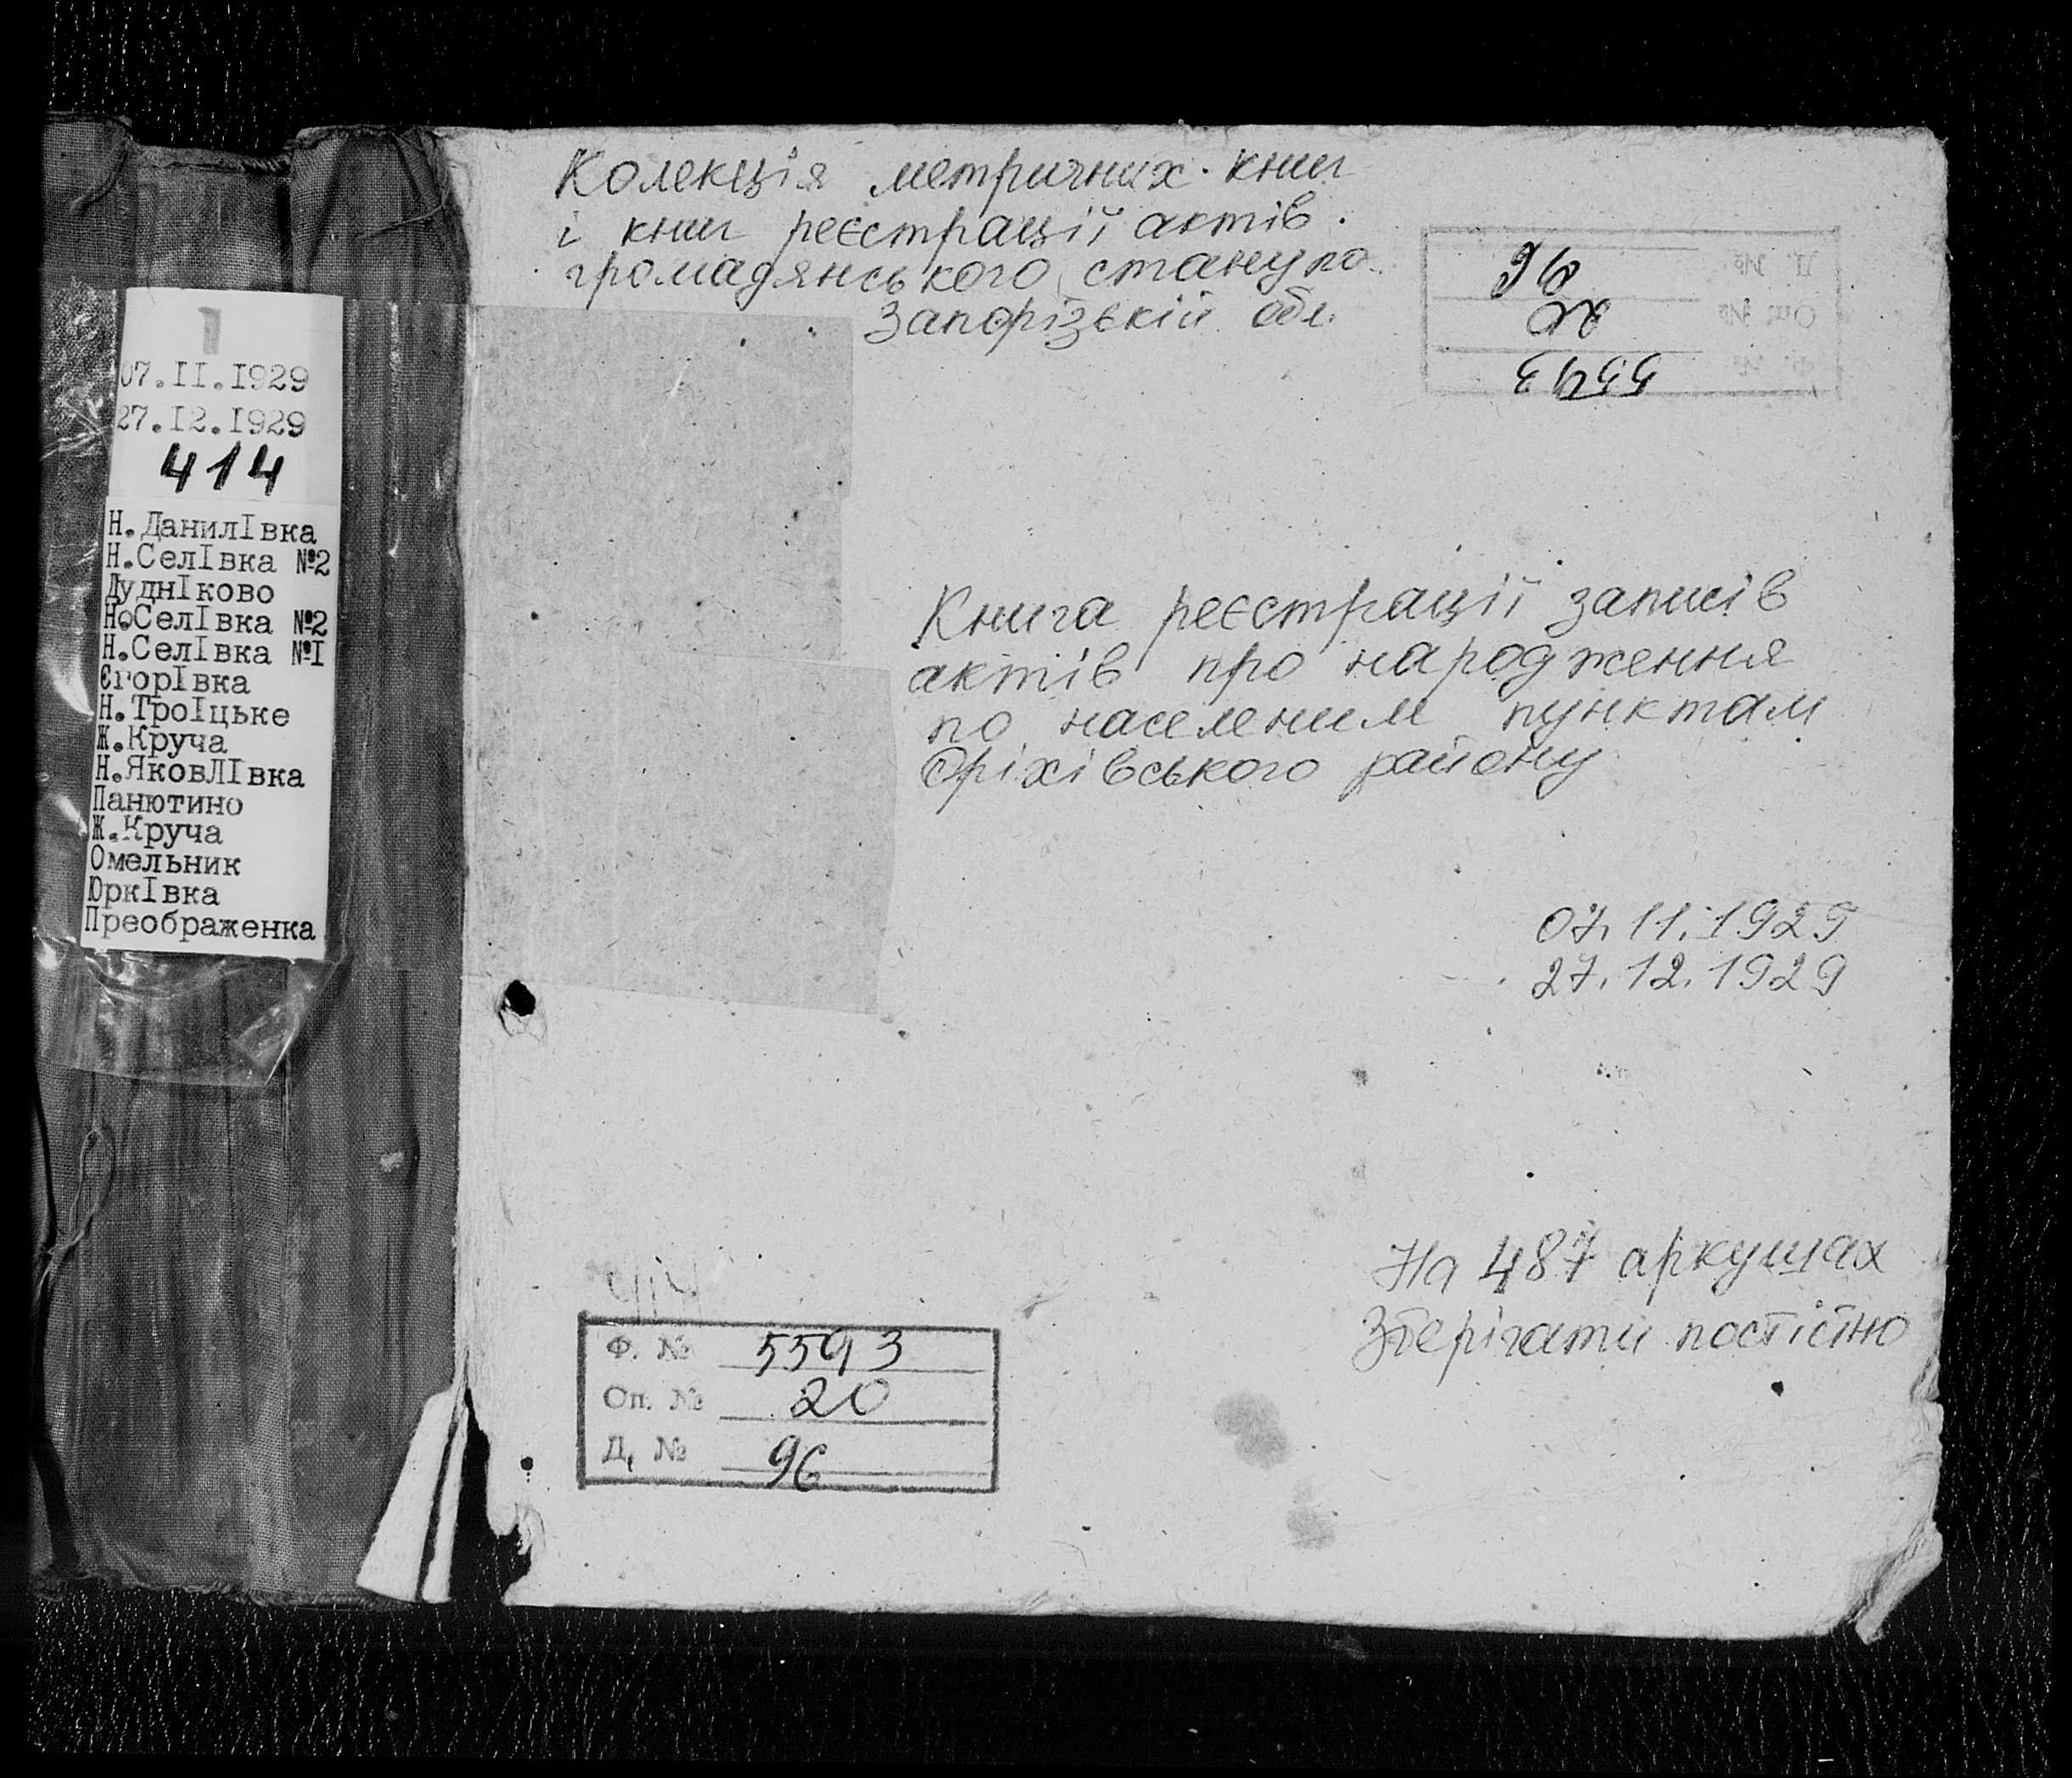 1
07.II.I929
27.I2.I929
414
Н.ДанилІвка
Н.СелІвка №2
ДуднІково
Н.СелІвка №2
Н.СелІвка №I
ЄгорІвка
Н.ТроІцьке
Ж.Круча
Н.ЯковЛІвка
Панютино
Ж.Круча
Омельник
ЮркІвка
Преображенка
Колекція метричних книг
і книг реєстрації актів
громадянського стану по
Запорізькій обл.
Ф. №
5593
Оп. №
20
Д. №
96
Книга реєстрації записів
актів про народження
по населеним пунктам
Оріхівського району
07.11.1929
27.12.1929
На 487 аркушах
Зберігати постійно
414
Ф. № 5593
Оп. № 20
Д. № 96